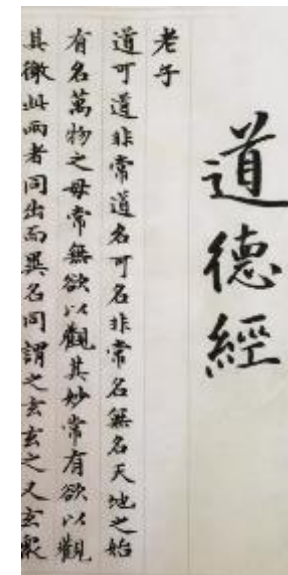 道德經
老子
道可道非常道名可名非常名無名天地之始
有名萬物之母常無欲以觀其妙常有欲以觀
其徼此兩者同出而異名同謂之玄玄之又玄眾